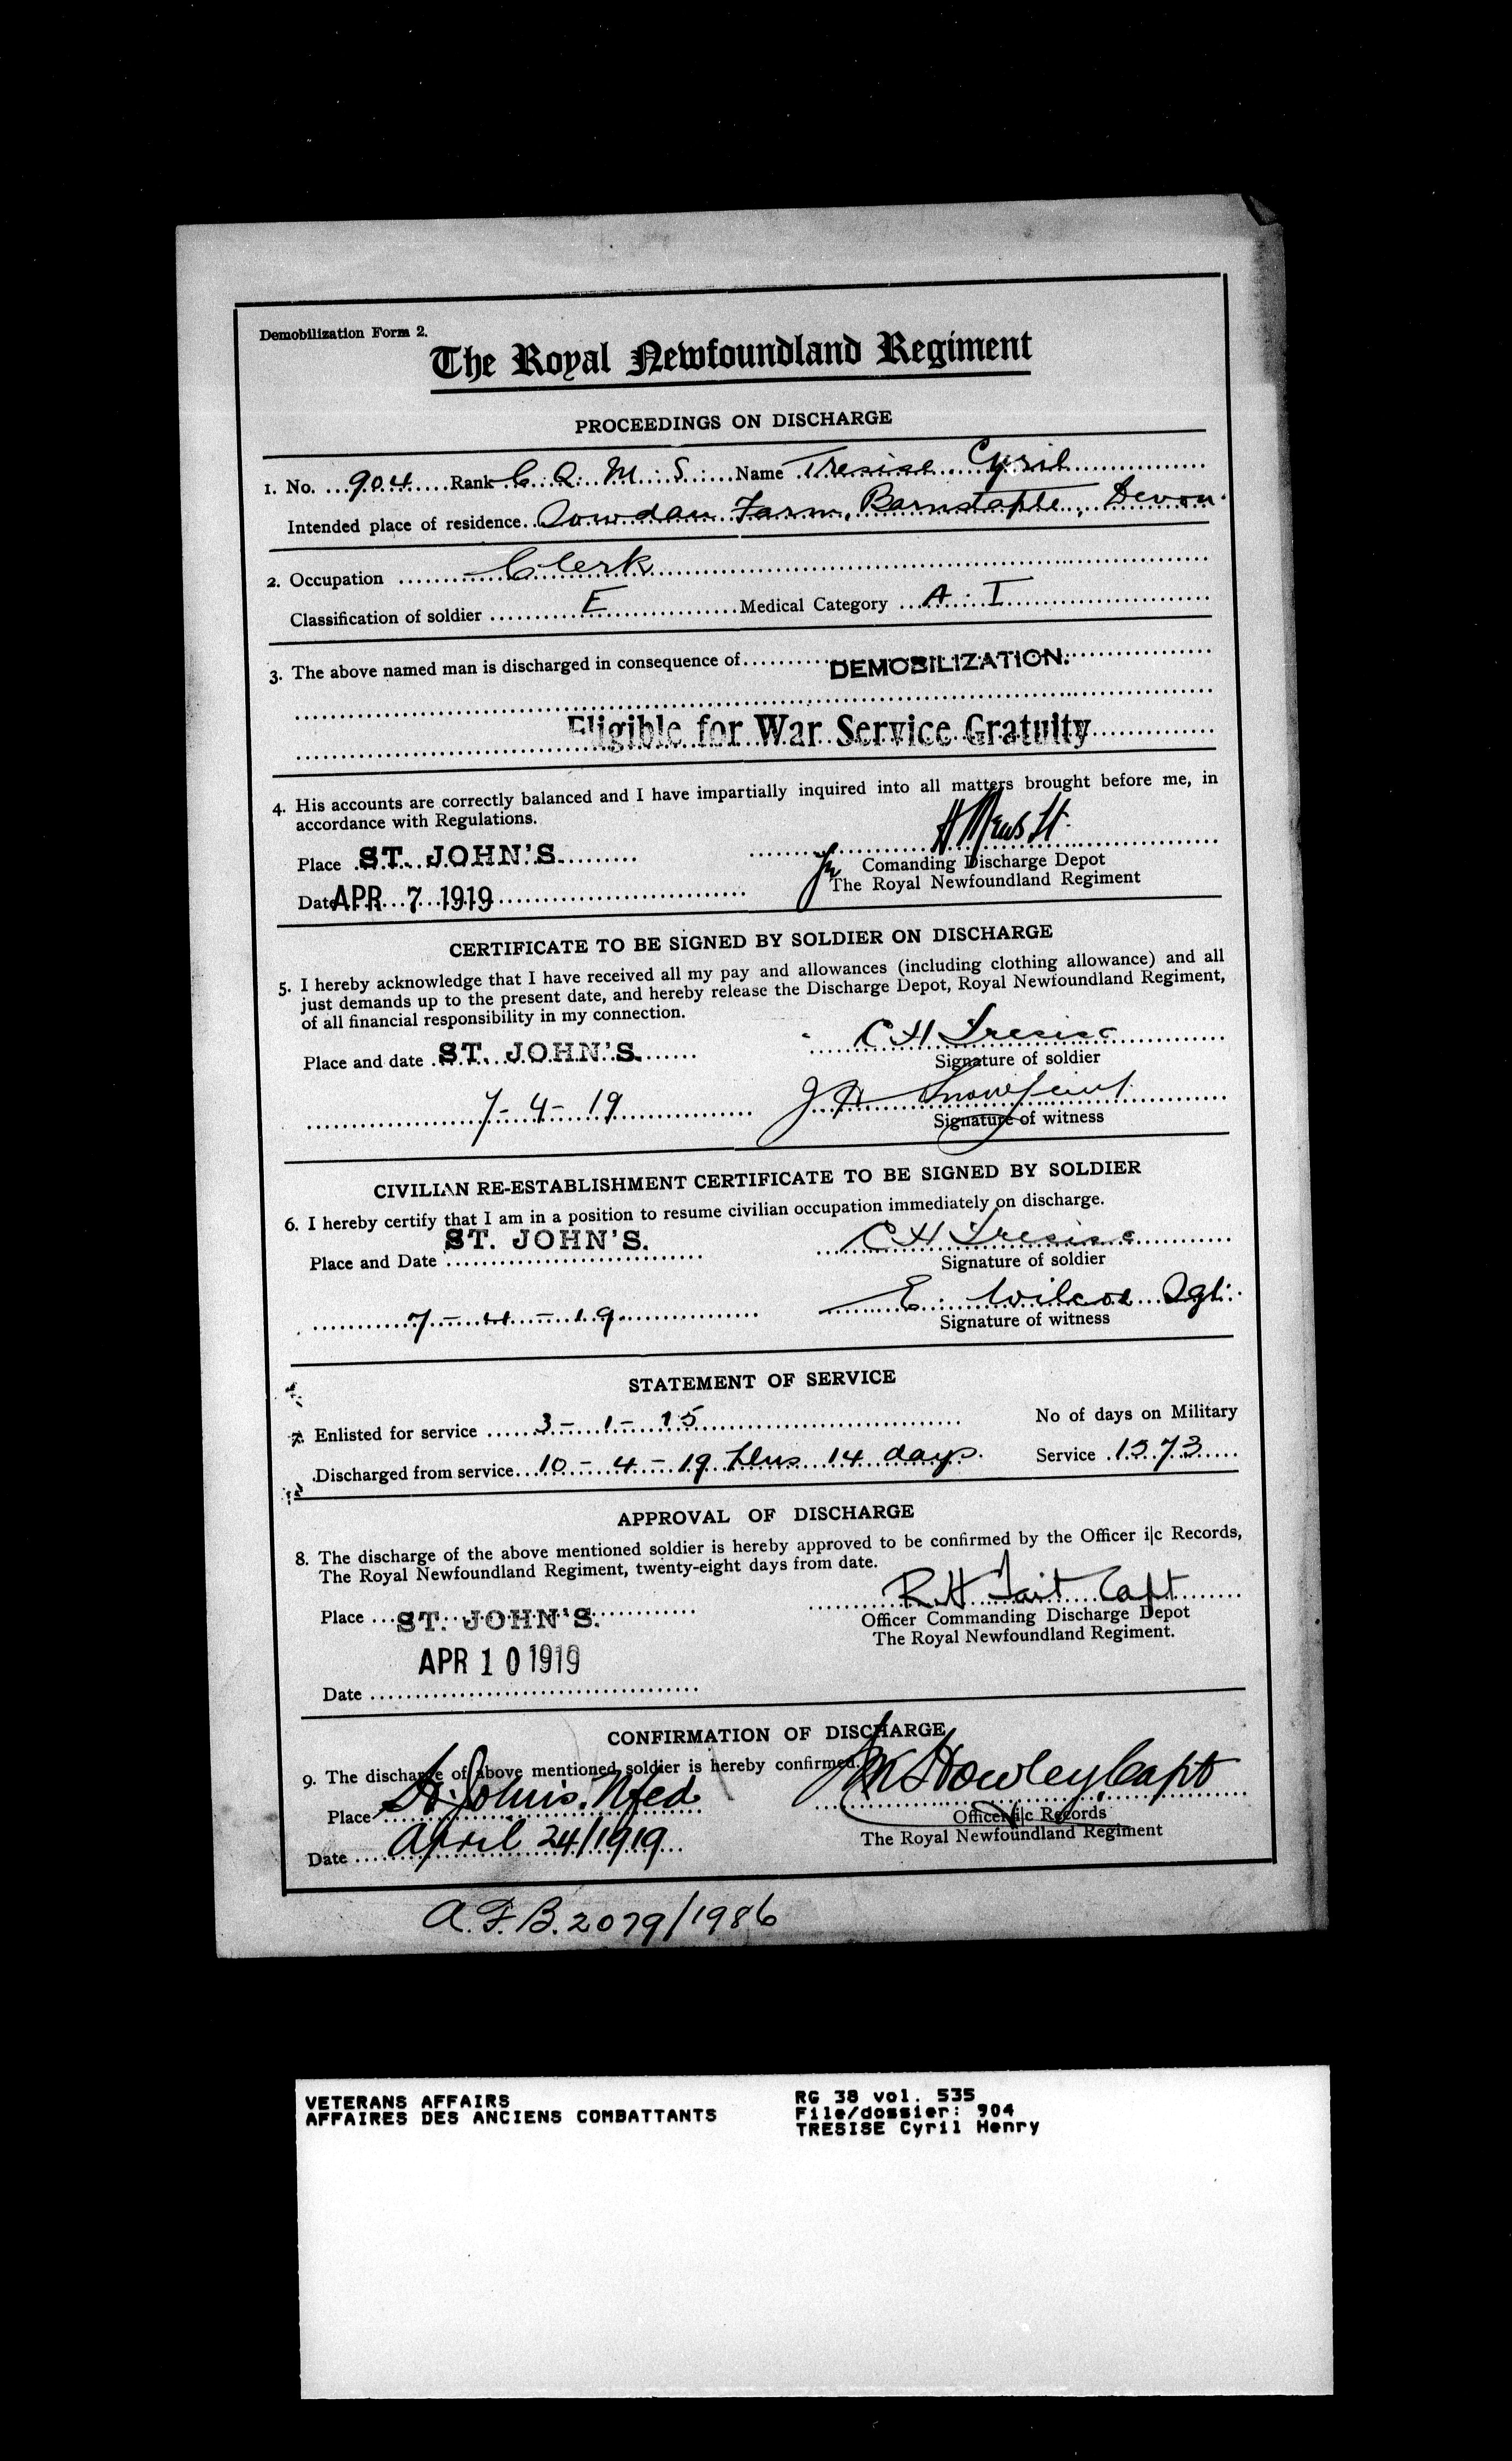 Demobilization Form 2.
The Royal Newfoundland Regiment
PROCEEDINGS ON DISCHARGE
1. No. 904 Rank C. Q. M. S. Name Tresise Cyril
Intended place of residence Sowdau Farm, Barnstaple, Devon.
2. Occupation Clerk
Classification of soldier E Medical Category A I
3. The above named man is discharged in consequence of DEMOBILIZATION.
Eligible for War Service Gratuity
4. His accounts are correctly balanced and I have impartially inquired into all matters brought before me, in
accordance with Regulations.
Place ST. JOHN'S
Comanding Discharge Depot
Date APR 7 1919
The Royal Newfoundland Regiment
CERTIFICATE TO BE SIGNED BY SOLDIER ON DISCHARGE
5. I hereby acknowledge that I have received all my pay and allowances (including clothing allowance) and all
just demands up to the present date, and hereby release the Discharge Depot, Royal Newfoundland Regiment,
of all financial responsibility in my connection.
Place and date ST. JOHN'S. C H Tresise
Signature of soldier
7-4-19
Signature of witness
CIVILIAN RE-ESTABLISHMENT CERTIFICATE TO BE SIGNED BY SOLDIER
6. I hereby certify that I am in a position to resume civilian occupation immediately on discharge.
Place and Date ST. JOHN'S. C H Tresise
Signature of soldier
7-4-19 E. Wilcox Sgt.
Signature of witness
STATEMENT OF SERVICE
7. Enlisted for service 3-1-15 No of days on Military
Discharged from service 10-4-19 Plus 14 days. Service 1573
APPROVAL OF DISCHARGE
8. The discharge of the above mentioned soldier is hereby approved to be confirmed by the Officer i|c Records,
The Royal Newfoundland Regiment, twenty-eight days from date.
Place ST. JOHN'S. R H Tait Capt
Officer Commanding Discharge Depot
The Royal Newfoundland Regiment.
APR 10 1919
Date
CONFIRMATION OF DISCHARGE
9. The discharge of above mentioned soldier is hereby confirmed.
Place St. John's. Nfed Howley, Capt
Officer i|c Records
Date April 24/1919 The Royal Newfoundland Regiment
A.F.B. 2079/1986
VETERANS AFFAIRS
AFFAIRES DES ANCIENS COMBATTANTS
RG 38 vol. 535
File/dossier: 904
TRESISE Cyril Henry